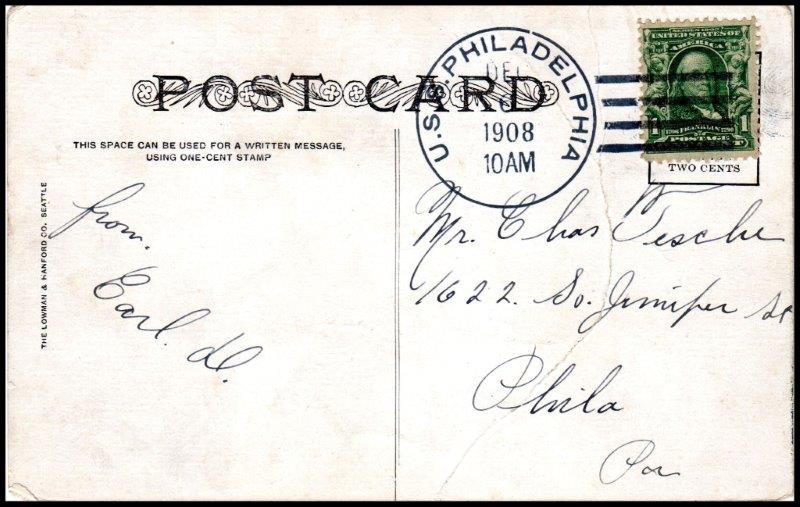 POST CARD
THIS SPACE CAN BE USED FOR A WRITTEN MESSAGE,
USING ONE-CENT STAMP
THE LOWMAN & HANFORD CO. SEATTLE
from.
Earl. D.
U.S.S. PHILADELPHIA
1908
10AM
UNITED STATES OF
AMERICA
1 FRANKLIN 1
POSTAGE
TWO CENTS
Mr. Chas Tesche
1622. So. Juniper St
Phila
Pa